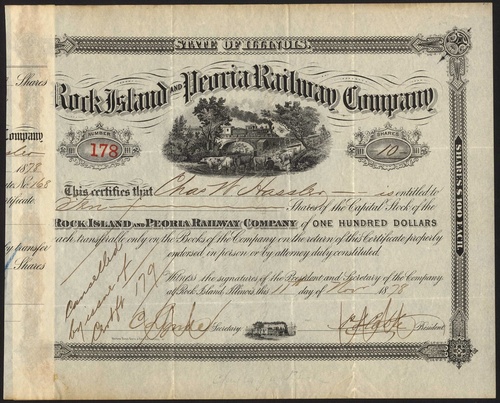 STATE OF ILLINOIS.
Shares
Rock Island AND Peoria Railway Company
Company
NUMBER
178
SHARES
10
1878
No. 168
This certifies that Chas W. Hassler is entitled to
Ten Shares of the Capital Stock of the
ROCK ISLAND AND PEORIA RAILWAY COMPANY OF ONE HUNDRED DOLLARS
each, transferable only on the Books of the Company on the return of this Certificate properly
endorsed in person or by attorney duly constituted.
by transfer
Shares
Witness the signatures of the President and Secretary of the Company
at Rock Island, Illinois, this 11th day of Nov 1878
Cancelled
by issue of
Certf 179
Secretary
President
SHARES $100 EACH